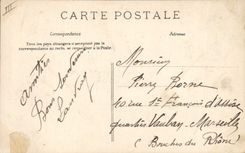 III
CARTE POSTALE
Correspondance
Adresse
Tous les pays étrangers n'acceptent pas la
correspondance au recto, se renseigner à la Poste.
Amitiés
Bons Souvenirs
Monsieur
Pierre
rue St François d'Assise
quartier Vauban Marseille
(Bouches du Rhône)